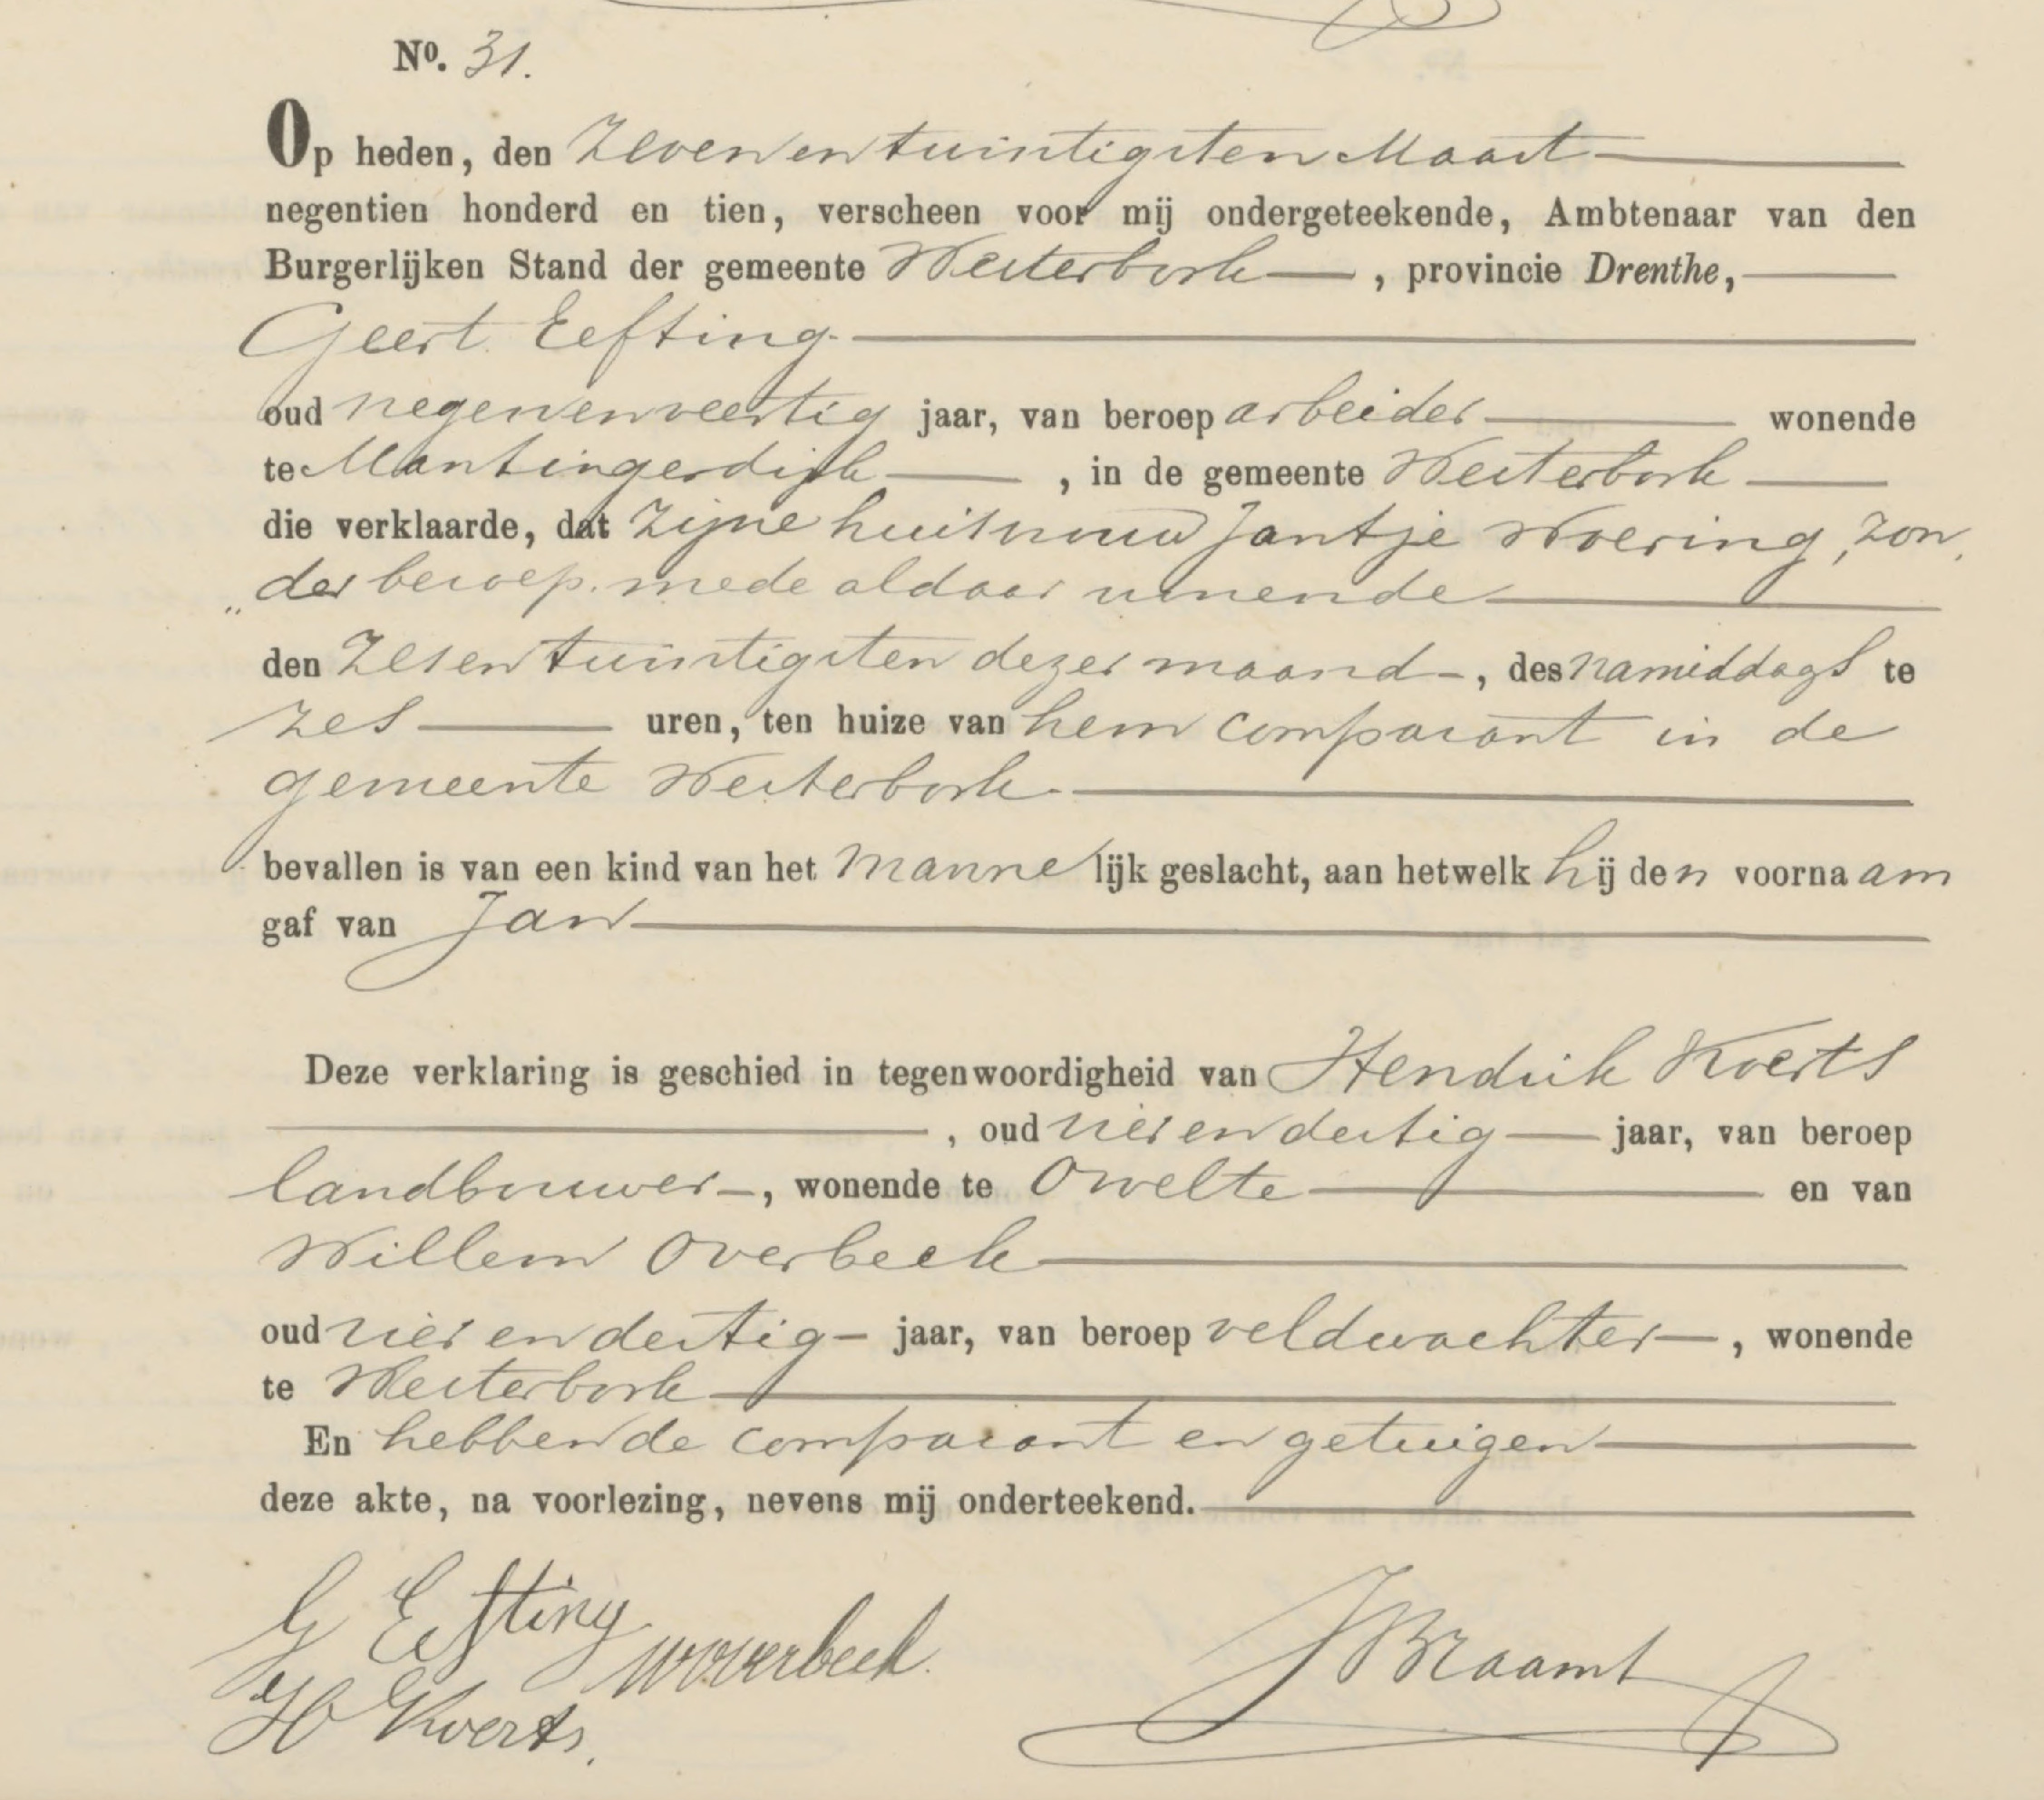 Nº. 31.
Op heden, den zeven en twintigsten Maart
negentien honderd en tien, verscheen voor mij ondergeteekende, Ambtenaar van den
Burgerlijken Stand der gemeente Westerbork, provincie Drenthe,
Geert Eefting
oud negenenveertig jaar, van beroep arbeider wonende
te Mantingerdijk, in de gemeente Westerbork
die verklaarde, dat zijne huisvrouw Jantje Woering, zon
„der beroep. mede aldaar wonende
den zesentwintigsten dezer maand, des namiddags te
zes uren, ten huize van hem comparant in de
gemeente Westerbork
bevallen is van een kind van het mannelijk geslacht, aan hetwelk hij den voornaam
gaf van Jan
Deze verklaring is geschied in tegenwoordigheid van Hendrik Koerts
, oud vierendertig jaar, van beroep
landbouwer, wonende te Orvelte en van
Willem Overbeek
oud vierendertig jaar, van beroep veldwachter, wonende
te Westerbork
En hebbende comparant en getuigen
deze akte, na voorlezing, nevens mij onderteekend.
G Eefting
W Overbeek.
H Koerts.
J Braamt